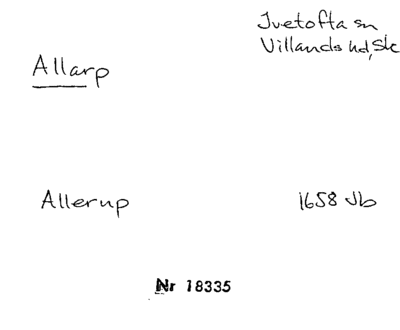 Ivetofta sn
Villands hd, Sk
Allarp
Allerup 1658 Jb
Nr 18335